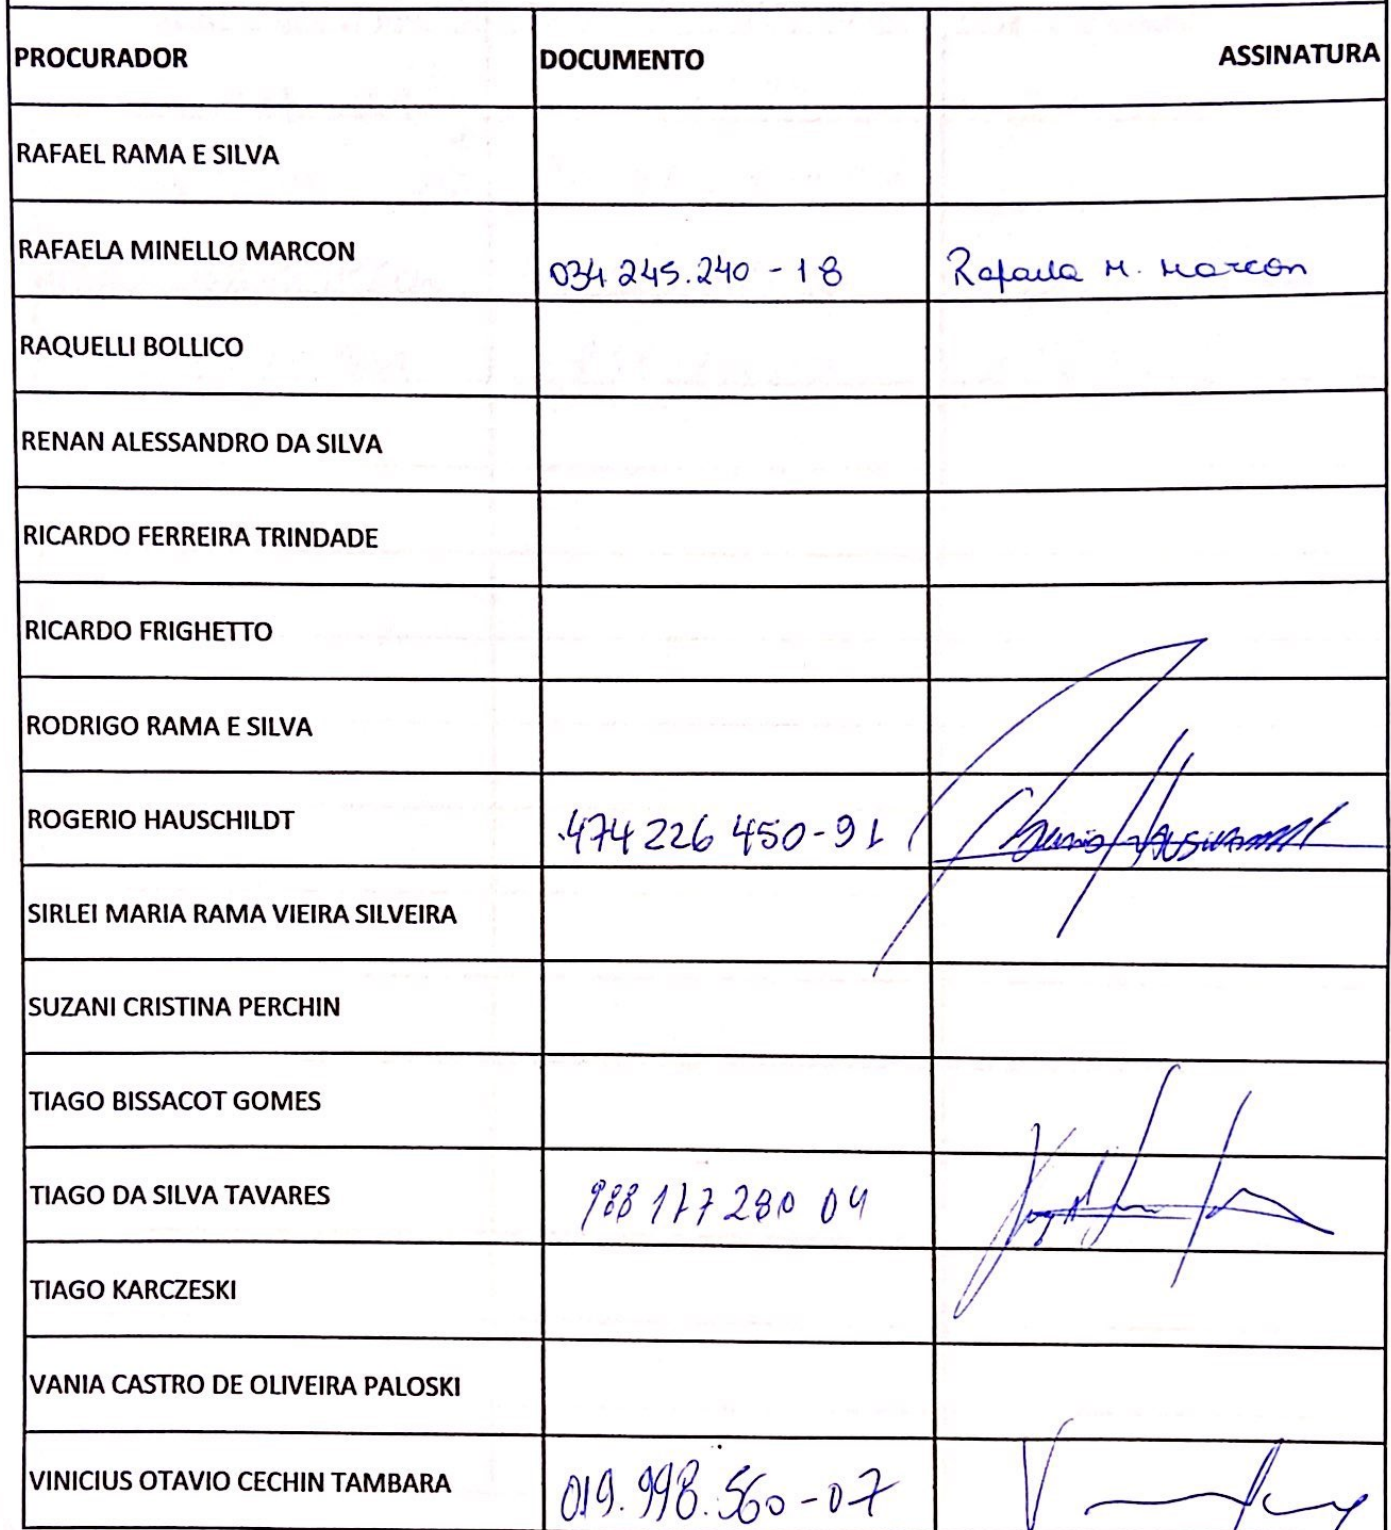 PROCURADOR DOCUMENTO ASSINATURA
RAFAEL RAMA E SILVA
RAFAELA MINELLO MARCON 034 245.240 - 18 Rafaela M. Marcon
RAQUELLI BOLLICO
RENAN ALESSANDRO DA SILVA
RICARDO FERREIRA TRINDADE
RICARDO FRIGHETTO
RODRIGO RAMA E SILVA
ROGERIO HAUSCHILDT 474 226 450-91
SIRLEI MARIA RAMA VIEIRA SILVEIRA
SUZANI CRISTINA PERCHIN
TIAGO BISSACOT GOMES
TIAGO DA SILVA TAVARES 04
TIAGO KARCZESKI
VANIA CASTRO DE OLIVEIRA PALOSKI
VINICIUS OTAVIO CECHIN TAMBARA 019.998.560-07